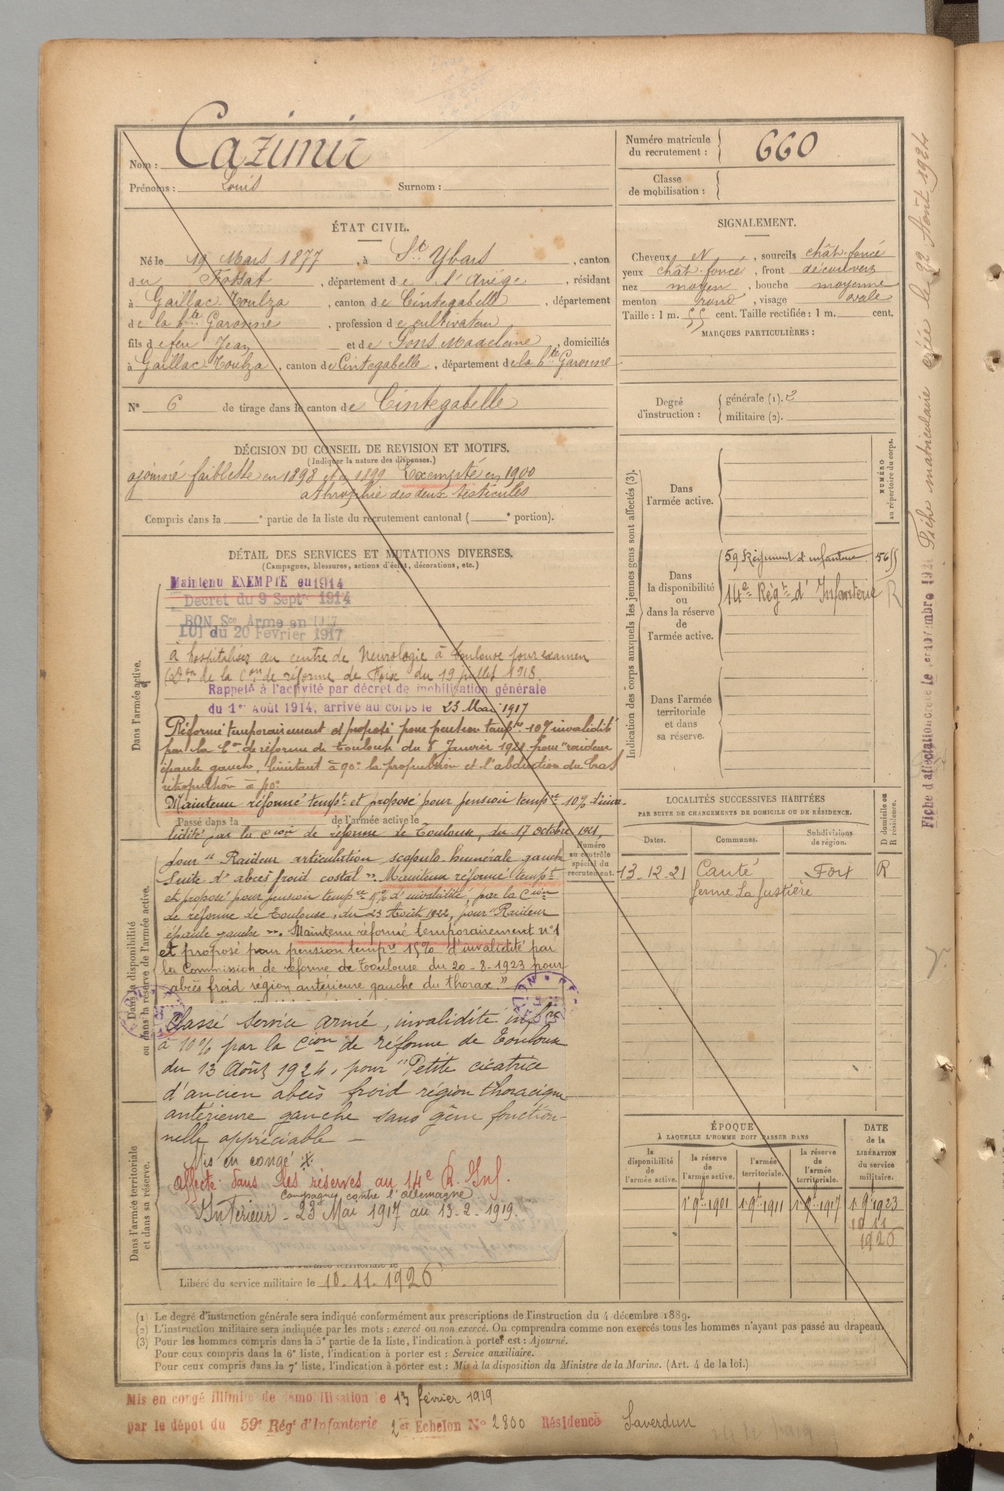 Nom : Cazimir
Prénoms : Louis Surnom :
Numéro matricule
du recrutement : 660
Classe
de mobilisation :
ÉTAT CIVIL.
Né le 19 Mars 1877, à St Ybars, canton
de Fossat, département de l'Ariège, résidant
à Gaillac Toulza, canton de Cintegabelle, département
de la hte Garonne, profession de cultivateur
fils de feu Jean et de Pons Madeleine, domiciliés
à Gaillac Toulza, canton de Cintegabelle, département de la hte Garonne
N° 6 de tirage dans le canton de Cintegabelle
SIGNALEMENT.
Cheveux N, sourcils chât foncé
yeux chât foncé, front découvert
nez moyen, bouche moyenne
menton rond, visage ovale
Taille : 1 m. 55 cent. Taille rectifiée : 1 m. cent.
MARQUES PARTICULIÈRES :
Degré
d'instruction :
générale (1). 2
militaire (2).
DÉCISION DU CONSEIL DE REVISION ET MOTIFS.
(Indiquer la nature des dispenses.)
ajourné faiblesse en 1898 et 1899 Exempté en 1900
athrophie des deux testicules
Compris dans la e partie de la liste du recrutement cantonal ( e portion).
DÉTAIL DES SERVICES ET MUTATIONS DIVERSES.
(Campagnes, blessures, actions d'éclat, décorations, etc.)
Dans l'armée active.
Maintenu EXEMPTE en 1914
Decret du 9 Septe 1914
BON Sce Armé en 1917
LOI du 20 Février 1917
à hospitaliser au centre de Neurologie à Toulouse pour examen
de la Con de réforme de Foix du 19 juillet 1918.
Rappelé à l'activité par décret de mobilisation générale
du 1er Août 1914, arrivé au corps le 23 Mai 1917
Réformé temporairement et proposé pour pension tempre 10% invalidité
par la Con de réforme de Toulouse du 5 Janvier 1921 pour "raideur
épaule gauche, limitant à 90° la propulsion et l'abduction du bras
rétropulsion à 40°
Maintenu réformé tempt et proposé pour pension tempre 10% d'inva-
Passé dans la de l'armée active le
lidité par la Cion de réforme de Toulouse, du 17 octobre 1921,
pour "Raideur articulation scapulo humérale gauche
suite d'abcès froid costal". Maintenu réformé tempt
et proposé pour pension tempre d'invalidité, par la Cion
de réforme de Toulouse, du 23 Août 1922, pour "Raideur
épaule gauche". Maintenu réformé temporairement n°1
et proposé pour pension tempre 15% d'invalidité par
la Commission de réforme de Toulouse du 20-8-1923 pour
"abcès froid région antérieure gauche du thorax."
Dans la disponibilité
ou dans la réserve de l'armée active.
Classé service armé, invalidité infre
à 10% par la Cion de réforme de Toulouse
du 13 Août 1924, pour "Petite cicatrice
d'ancien abcès froid région thoracique
antérieure gauche sans gêne fonction-
nelle appréciable —
Mis en congé
Affecté dans les réserves au 14e R. Inf.
campagne contre l'allemagne
Intérieur - 23 Mai 1917 au 13-2-1919.
Dans l'armée territoriale
et dans sa réserve.
Libéré du service militaire le 10-11-1926
Indication des corps auxquels les jeunes gens sont affectés (3).
NUMÉRO
au répertoire du corps.
Dans
l'armée active.
Dans
la disponibilité
ou
dans la réserve
de
l'armée active.
59 Régiment d'infanterie
14e Régt d'Infanterie R
Dans l'armée
territoriale
et dans
sa réserve.
Numéro
au contrôle
spécial du
recrutement.
LOCALITÉS SUCCESSIVES HABITÉES
PAR SUITE DE CHANGEMENTS DE DOMICILE OU DE RÉSIDENCE.
Dates. Communes. Subdivisions
de région.
D domicile ou
R résidence.
13.12.21 Canté Foix R
ferme La Justière
ÉPOQUE
À LAQUELLE L'HOMME DOIT PASSER DANS
la
disponibilité
de
l'armée active.
la réserve
de
l'armée active.
l'armée
territoriale.
la réserve
de l'armée
territoriale.
DATE
de la
LIBÉRATION
du service
militaire.
1 9bre 1901 1 9bre 1911 1 9bre 1917 1 9bre 1923
10 11
1926
(1) Le degré d'instruction générale sera indiqué conformément aux prescriptions de l'instruction du 4 décembre 1889.
(2) L'instruction militaire sera indiquée par les mots : exercé ou non exercé. On comprendra comme non exercés tous les hommes n'ayant pas passé au drapeau.
(3) Pour les hommes compris dans la 5e partie de la liste, l'indication à porter est : Ajourné.
Pour ceux compris dans la 6e liste, l'indication à porter est : Service auxiliaire.
Pour ceux compris dans la 7e liste, l'indication à porter est : Mis à la disposition du Ministre de la Marine. (Art. 4 de la loi.)
Mis en congé illimité de démobilisation le 13 février 1919
par le dépôt du 59e Régt d'Infanterie 2er Echelon N° 2800 Résidence Saverdun
Fiche matriculaire créée le 22 Août 1924